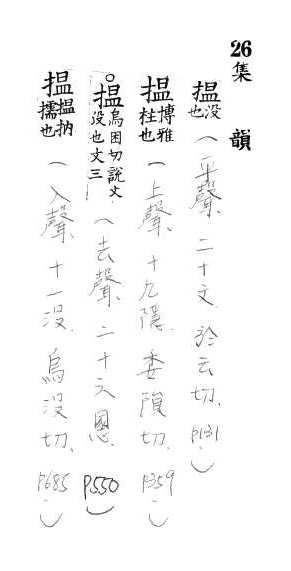 26 集 韻
搵 没也 (平聲、二十文、於云切、P131)
搵 博雅柱也 (上聲、十九隱、委隕切、P359)
○搵 烏困切說文没也文三 (去聲、二十六慁、P550)
搵 搵抐擩也 (入聲、十一没、烏没切、P685)